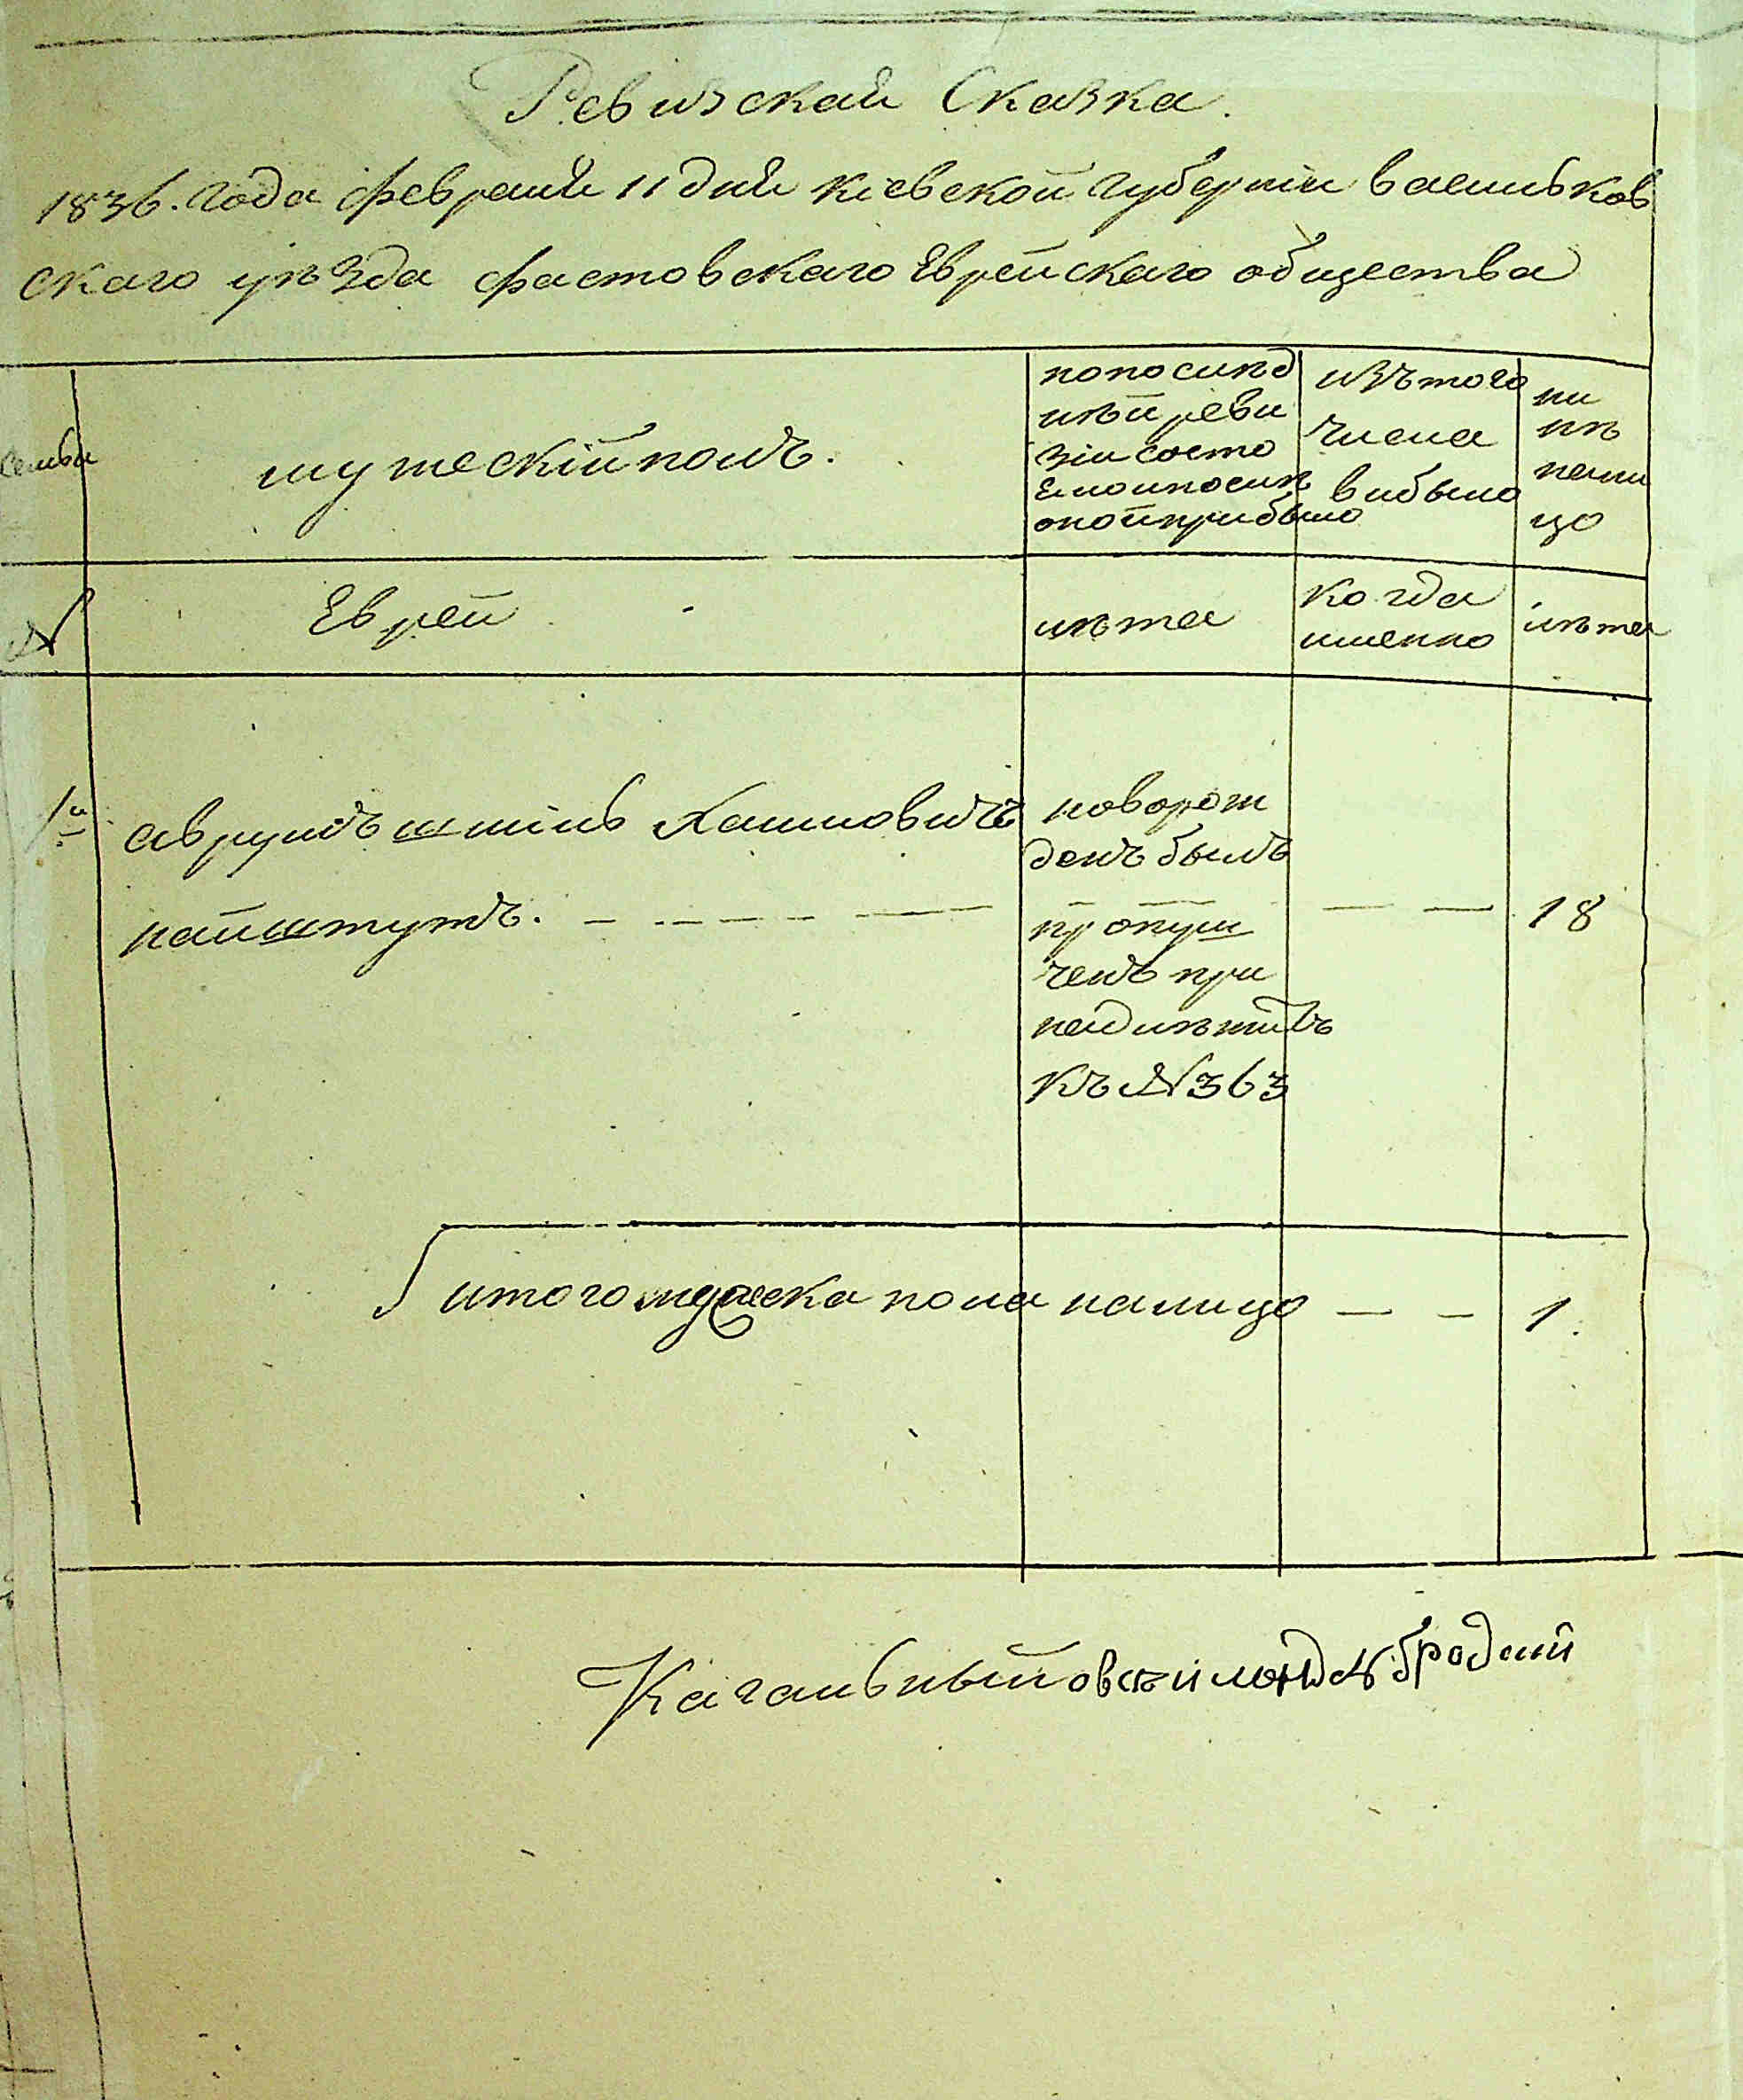 Ревизская Сказка.
1836. года февраля 11 дня кіевской губерніи васильков
скаго уѣзда фастовского Еврейскаго общества
семьи
мужескій полъ.
попослѣд
нѣй реви
зіи состо
яло ипослѣ
оной прибыло
изъ того
числа
вибыло
ни
нѣ
нали
цо
№
Еврей
лѣта
когда
именно
лѣта
1й
аврумъ шміль Хаимовичъ
новорож
денъ былъ
найштутъ. - - - - - -
пропущ
— —
18
ченъ при
надлѣжитъ
къ №363
итого мужеска пола налицо — —
1.
Кагальный бродский